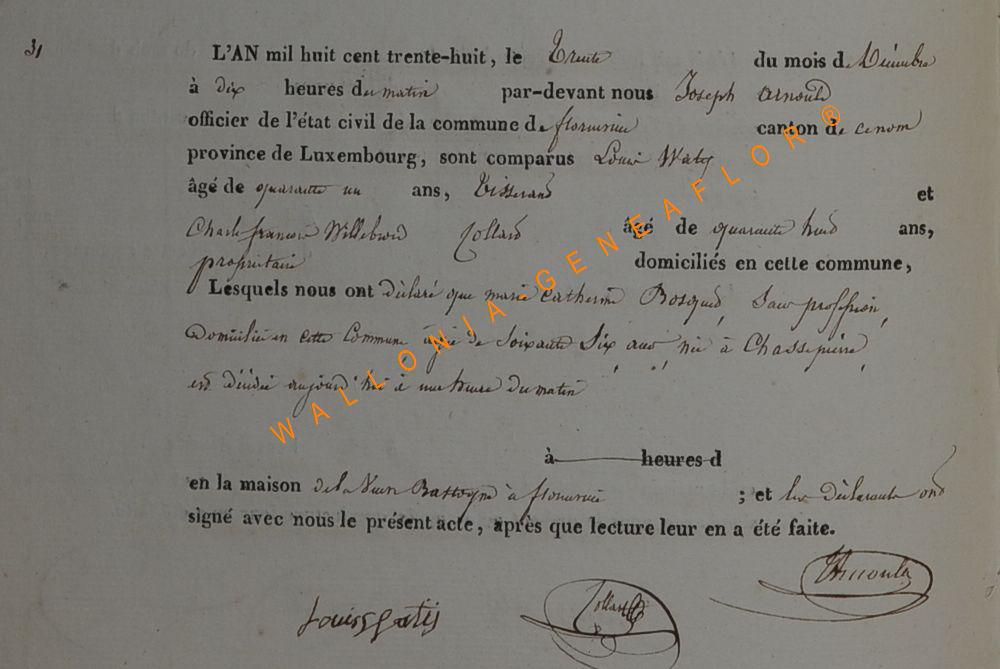 31
L'AN mil huit cent trente-huit, le Trente du mois de Décembre
à dix heures du matin par-devant nous Joseph Arnould
officier de l'état civil de la commune de florenville canton de
province de Luxembourg, sont comparus Louis Waty
âgé de quarante un ans, Tisserand et
Charle françois Willebrord Collard âgé de quarante huit ans,
propriétaire domiciliés en cette commune,
Lesquels nous ont déclaré que marie Catherine Bosquet, Sans profession,
Domiciliée en cette Commune âgée de Soixante Six ans, née à Chassepierre,
est décédée aujourd'hui à une heure du matin
à heures d
en la maison de la Veuve à florenville ; et les déclarants ont
signé avec nous le présent acte, après que lecture leur en a été faite.
Arnould
Collard
WALLONIA-GENEAFLOR®